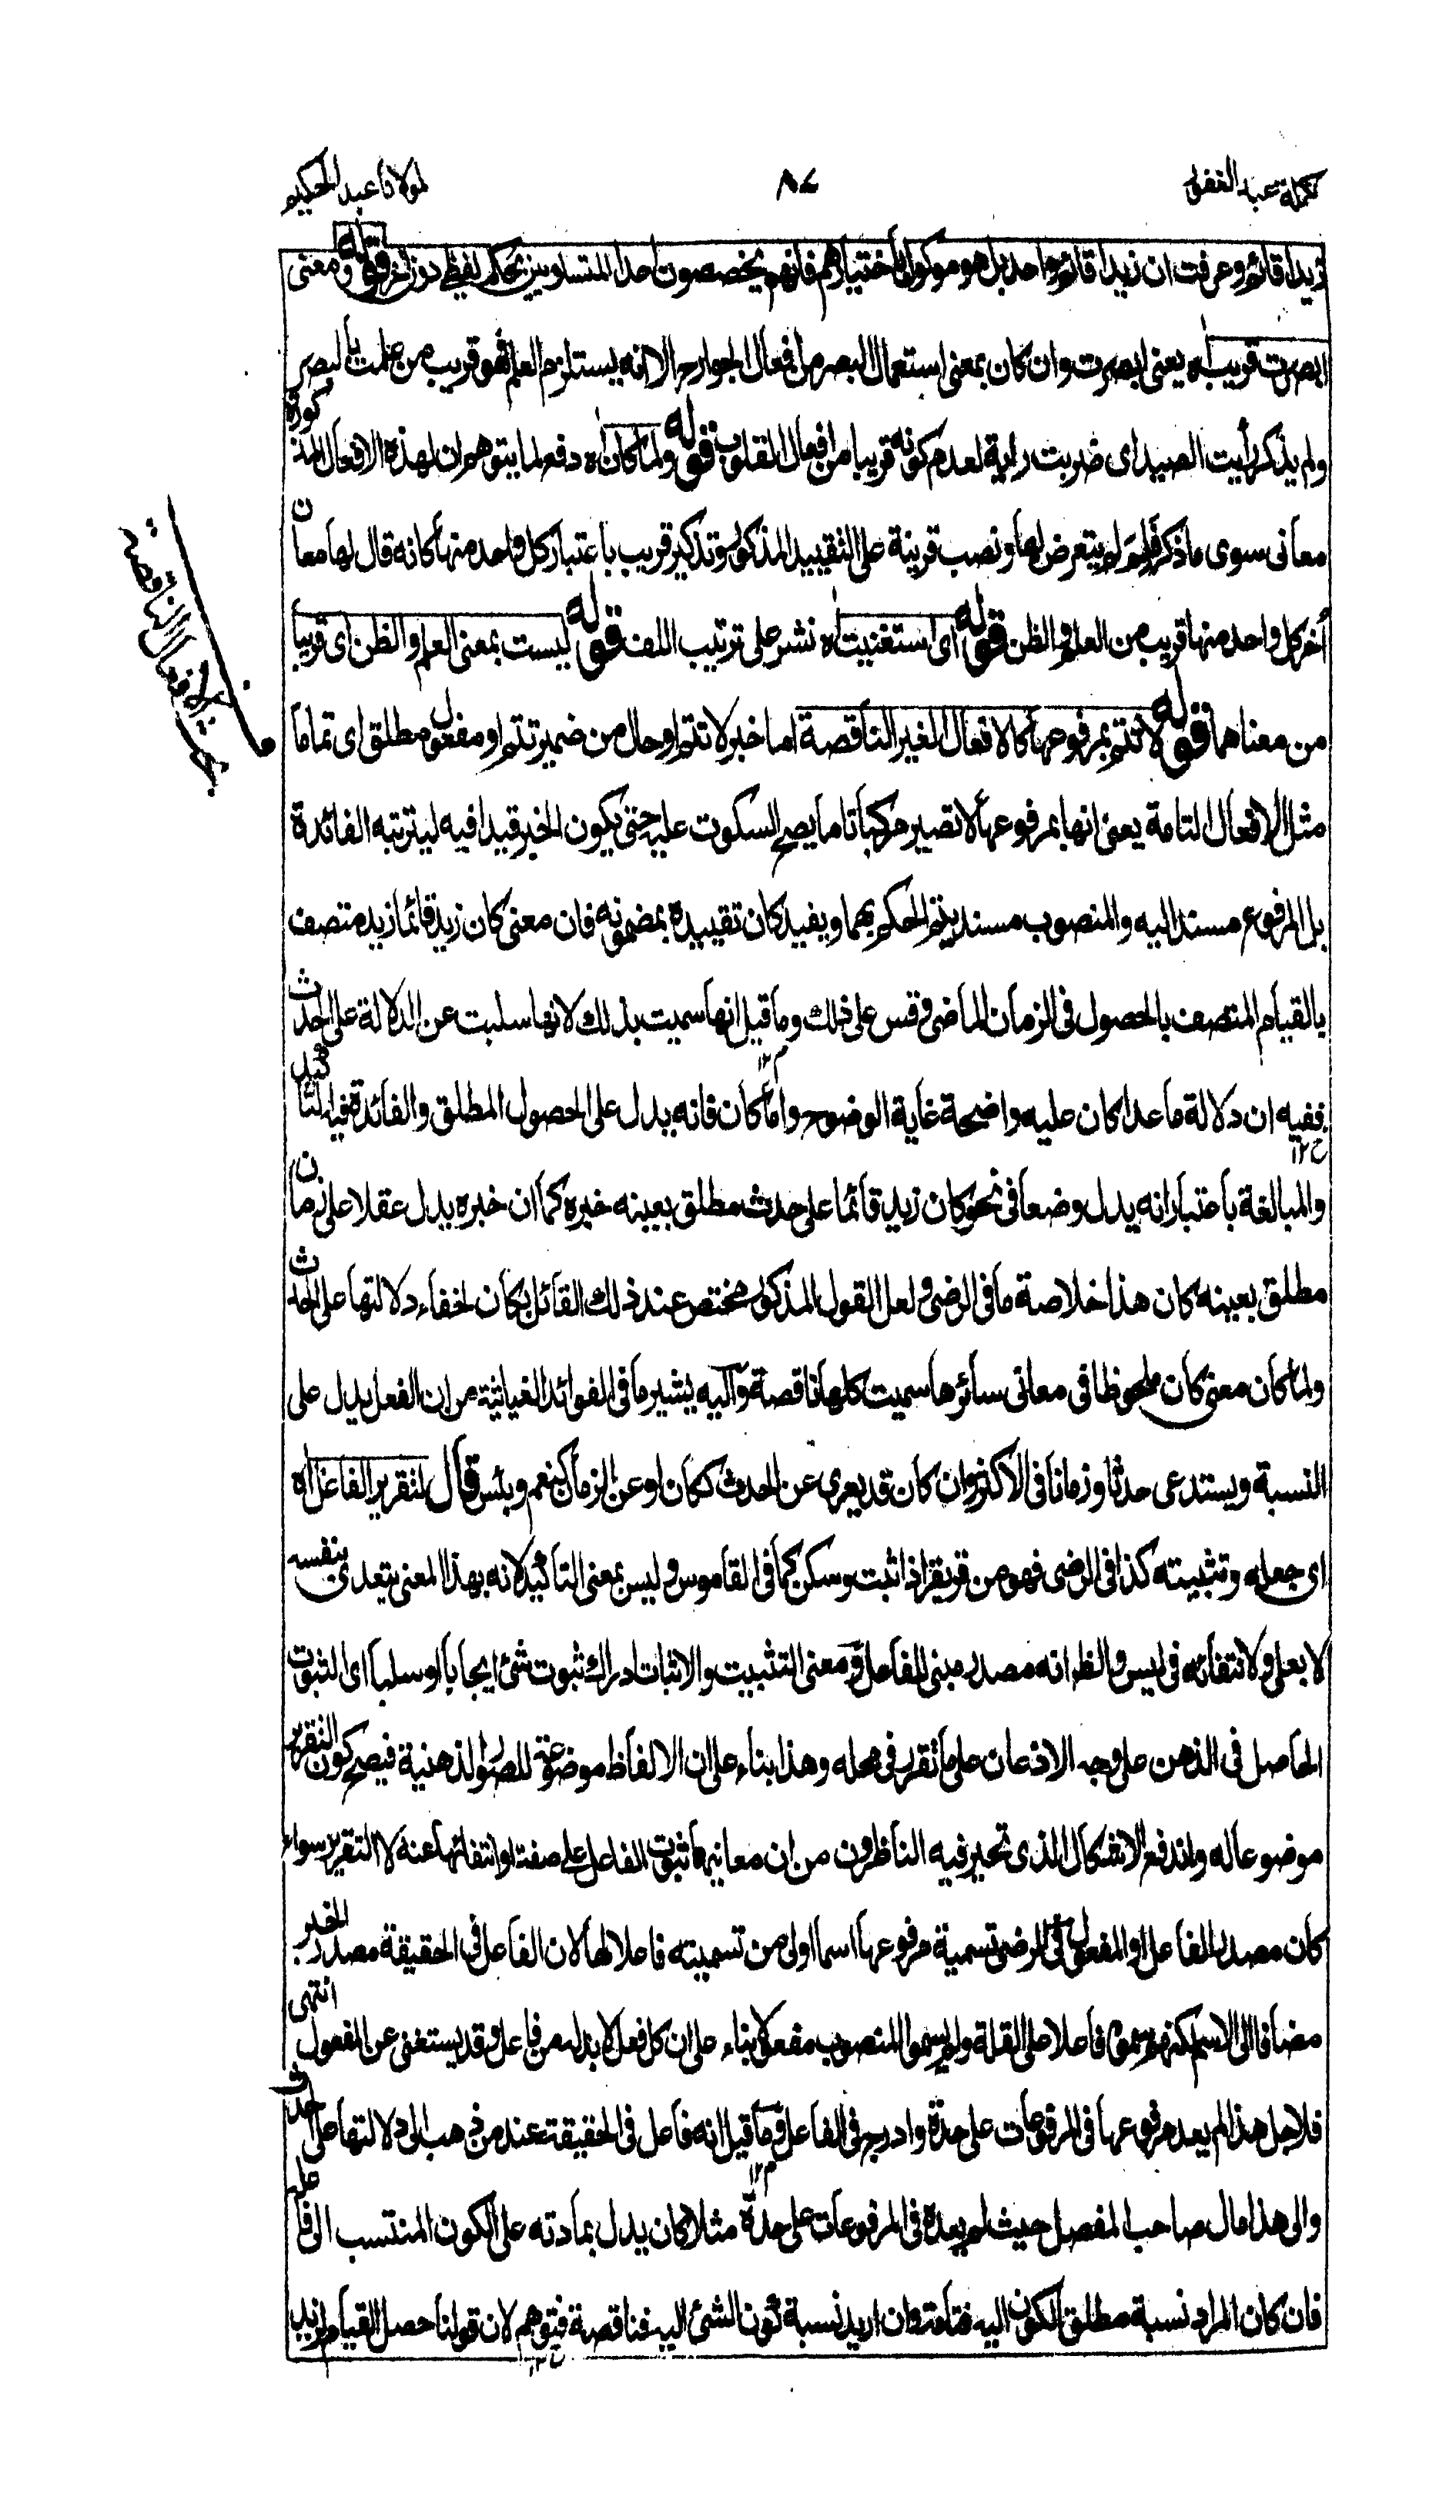 تكملة عبد الغفور
٨٧
لمولانا عبد الحكيم
زيدا قائم وعرفت ان زيدا قائم واحد بل هو موكول باختيارهم فانهم يخصصون احد المتساويين بحكم لفظي دون الاخر قوله ومعنى
ابصرت قريب اه يعنى ابصرت وان كان بمعنى استعمال البصر من افعال الجوارح الا انه يستلزم العلم فهو قريب من علمت بالبصر
ولم يذكر رأيت الصيد اى ضربت رايته لعدم كونه قريبا من افعال القلوب قوله ولما كان اه دفع لما يتوهم ان لهذه الافعال المذكورة
معانى سوى ما ذكر فلم لم يتعرض لها ونصب قرينة على التقييد المذكور وتذكير قريب باعتبار كل واحد منها كانه قال لها معان
أخر كل واحد منها قريب من العلم والظن قوله اى استغنيت اه نشر على ترتيب اللف قوله ليست بمعنى العلم والظن اى قريبا
من معناهما قوله لا تتم بمرفوعها كالافعال الغير الناقصة اما خبر لا تتم او حال من ضمير تتم او مفعول مطلق اى تماما
مثل الافعال التامة يعنى انها بمرفوعها لا تصير مركبا تاما يصح السكوت عليه حتى يكون الخبر قيدا فيه ليتربته الفائدة
بل المرفوع مسند اليه والمنصوب مسند يتم الحكم بهما ويفيد كان تقييده بمضمونه فان معنى كان زيد قائما زيد متصف
بالقيام المتصف بالحصول فى الزمان الماضى وقس على ذلك وما قيل انها سميت بذلك لانها سلبت عن الدلالة على الحدث
ففيه ان دلالة ما عدا كان عليه واضحة غاية الوضوح واما كان فانه يدل على الحصول المطلق والفائدة فيه التاكيد
والمبالغة باعتبار انه يدل وضعا فى نحو كان زيد قائما على حدث مطلق بعينه خبره كما ان خبره يدل عقلا على زمان
مطلق بعينه كان هذا خلاصة ما فى الرضى ولعل القول المذكور مختص عند ذلك القائل بكان لخفاء دلالتها على الحدث
ولما كان معنى كان ملحوظا فى معانى سائرها سميت كلها ناقصة واليه يشير ما فى الفوائد الغياثية من ان الفعل يدل على
النسبة ويستدعى حدثا وزمانا فى الاكثر وان كان قد يعرى عن الحدث ككان او عن الزمان كنعم وبئس قال لتقرير الفاعل اه
اى جعله وتثبيته كذا فى الرضى فهو من قر يقر اذا ثبت وسكن كما فى القاموس وليس بمعنى التأكيد لانه بهذا المعنى يتعدى بنفسه
لا بعلى ولانتفائه فى ليس والظ انه مصدر مبنى للفاعل ومعنى التثبيت والاثبات ادراك ثبوت شئ ايجابا او سلبا اى الثبوت
الحاصل فى الذهن على وجه الاذعان على ما تقرر فى محله وهذا بناء على ان الالفاظ موضوعة للصور الذهنية فيصح كون التقرير
موضوعا له واندفع الاشكال الذى تحير فيه الناظرون من ان معانيها ثبوت الفاعل على صفة او انتفائها عنه لا التقرير سواء
كان مصدر للفاعل او المفعول فى الرضى تسمية مرفوعها اسما اولى من تسميته فاعلا لها لان الفاعل فى الحقيقة مصدر الخبر
مضافا الى الاسم لكنهم سموه فاعلا على القلة ولم يسموا المنصوب مفعولا بناء على ان كل فعل لا بد له من فاعل وقد يستغنى عن المفعول انتهى
فلاجل هذا لم يعد مرفوعها فى المرفوعات على حدة وادرج فى الفاعل وما قيل انه فاعل فى الحقيقة عند من ذهب الى دلالتها على الحدث
والى هذا مال صاحب المفصل حيث لم يعده فى المرفوعات على حدة مثلا كان يدل بمادته على الكون المنتسب الى فاعله
فان كان المراد نسبة مطلق الكون اليه فتامة وان اريد نسبة كون الشئ اليه فناقصة فتوهم لان قولنا حصل القيام لزيد
بحث الافعال الناقصة